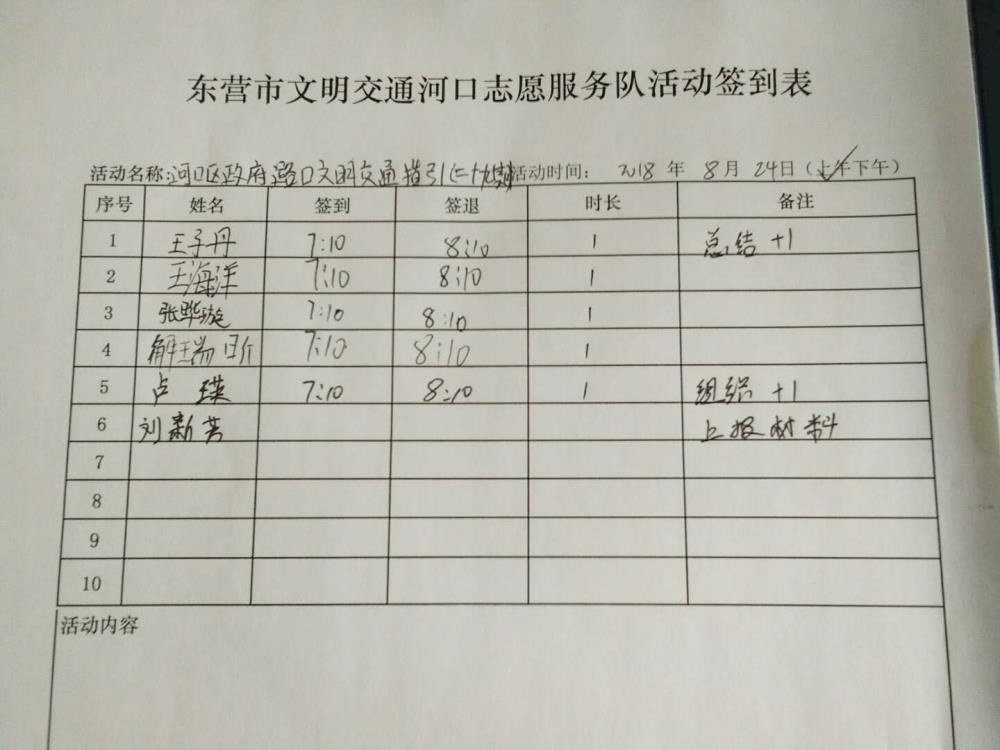 东营市文明交通河口志愿服务队活动签到表
活动名称:河口区政府路口文明交通指引(二十 活动时间: 2018 年 8月 24日(上午下午)
序号 姓名 签到 签退 时长 备注
1 王子丹 7:10 8:10 1 总结 +1
2 王海洋 7:10 8:10 1
3 张晔璇 7:10 8:10 1
4 解瑞 7:10 8:10 1
5 卢瑛 7:10 8:10 1 组织 +1
6 刘新芳 上报材料
7
8
9
10
活动内容